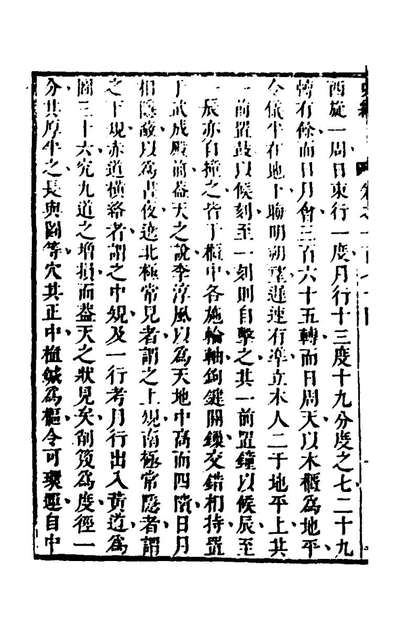 西旋一周日東行一度月行十三度十九分度之七二十九
轉有餘而日月會三百六十五轉而日周天以木櫃爲地平
令儀半在地下晦明朔望遲速有準立木人二于地平上其
一前置鼓以候刻至一刻則自擊之其一前置鐘以候辰至
一辰亦自撞之皆于櫃中各施輪軸鉤鍵關鏁交錯相持置
于武成殿前蓋天之說李淳風以爲天地中高而四隤日月
相隱蔽以爲晝夜遶北極常見者謂之上規南極常隱者謂
之下規赤道橫絡者謂之中規及一行考月行出入黃道爲
圖三十六究九道之增損而蓋天之狀見矣削篾爲度徑一
分其厚半之長與圖等穴其正中植鍼爲樞令可環運自中